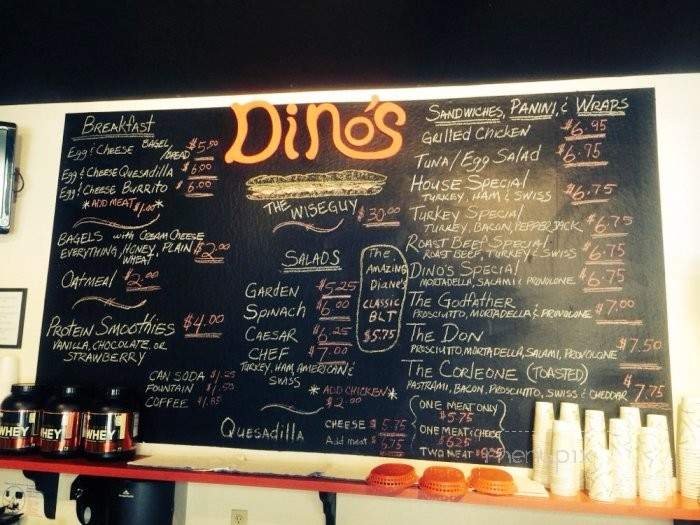 BREAKFAST
Egg & Cheese BAGEL /BREAD $5.00
Egg & Cheese Quesadilla $6.00
Egg & Cheese Burrito $6.00
*ADD MEAT $1.00*
BAGELS with CREAM CHEESE
EVERYTHING, HONEY, PLAIN $2.00
WHEAT
OATMEAL $2.00
PROTEIN SMOOTHIES $4.00
VANILLA, CHOCOLATE, OR
STRAWBERRY
CAN SODA $1.25
FOUNTAIN $1.50
COFFEE $1.85
Dino's
THE WISEGUY $30.00
SALADS
GARDEN $5.25
SPINACH $6.00
CAESAR $6.25
CHEF $7.00
TURKEY, HAM, AMERICAN &
SWISS
* ADD CHICKEN *
$2.00
The
AMAZING
Diane's
CLASSIC
BLT
$5.75
QUESADILLA CHEESE $5.75
Add meat $6.75
SANDWICHES, PANINI, & WRAPS
GRILLED CHICKEN $6.95
TUNA/EGG SALAD $6.75
HOUSE SPECIAL
TURKEY, HAM & SWISS $6.75
TURKEY SPECIAL
TURKEY, BACON, PEPPER JACK $6.75
ROAST BEEF SPECIAL
ROAST BEEF, TURKEY & SWISS $6.75
DINO'S SPECIAL
MORTADELLA, SALAMI & PROVOLONE $6.75
THE GODFATHER
PROSCIUTTO, MORTADELLA & PROVOLONE $7.00
THE DON
PROSCIUTTO, MORTADELLA, SALAMI, PROVOLONE $7.50
THE CORLEONE (TOASTED)
PASTRAMI, BACON, PROSCIUTTO, SWISS & CHEDDAR $7.75
ONE MEAT ONLY
$5.75
ONE MEAT & CHEESE
$6.25
TWO MEAT
WHEY
WHEY
WHEY
menupix